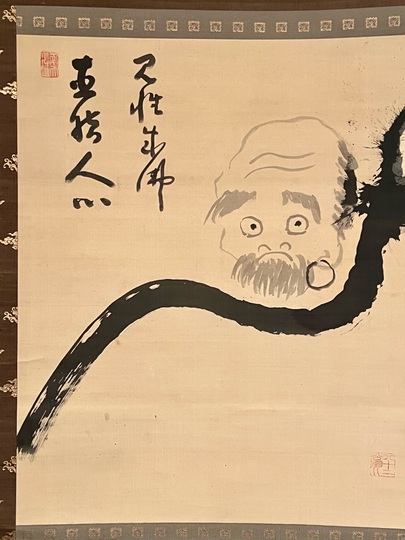 直指人心
見性成佛